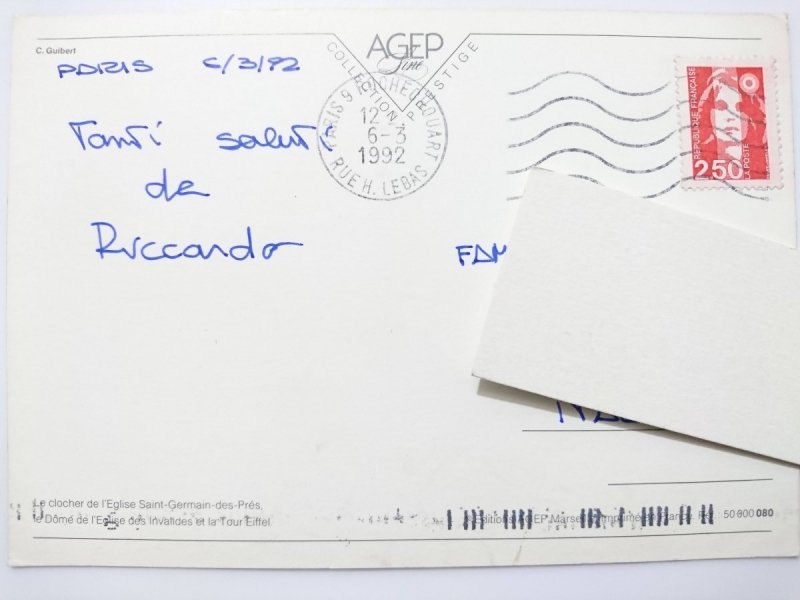 C. Guibert
AGEP
COLLECTION PRESTIGE
PARIS 9 ROCHECHOUART
12
6-3
1992
RUE H. LEBAS
RÉPUBLIQUE FRANÇAISE
2,50
LA POSTE
PARIS 6/3/92
Tanti saluti
da
Riccardo
FAM
Le clocher de l'Eglise Saint-Germain-des-Prés,
le Dôme de l'Eglise des Invalides et la Tour Eiffel
Editions AGEP Marseille
50 000 080